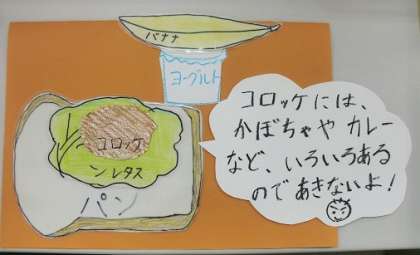 バナナ
ヨーグルト
コロッケ
レタス
パン
コロッケには、
かぼちゃや カレー
など、いろいろある
のであきないよ!